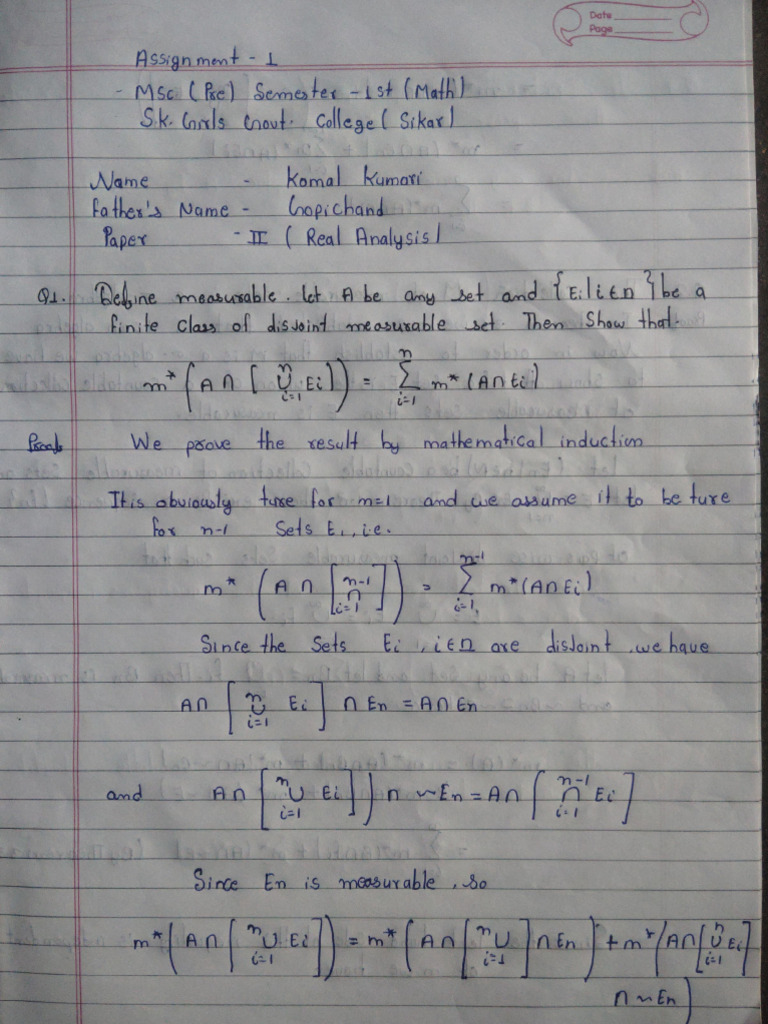 Date
Page
Assignment - 1
- MSc (Pre) Semester - 1st (Math)
S.k. Girls Govt. College ( Sikar)
Name - Komal Kumari
Father's Name - Gopichand
Paper - II ( Real Analysis)
Q1. Define measurable. let A be any set and {Ei|i∈n} be a
finite class of disjoint measurable set. Then Show that.
m* (A∩ [ n∪i=1 Ei]) = n∑i=1 m* (A∩Ei)
Proof We prove the result by mathematical induction
It is obviously ture for n=1 and we assume it to be ture
for n-1 Sets Ei, i.e.
m* (A ∩ [n-1∩i=1]) = n-1∑i=1 m* (A∩Ei)
Since the Sets Ei, i∈n are disjoint, we have
A∩ [n∪i=1 Ei] ∩ En = A∩ En
and A∩ [n∪i=1 Ei]) ∩ ~En = A∩ [n-1∩i=1 Ei]
Since En is measurable, so
m* (A∩ [n∪i=1 Ei]) = m* (A∩ [n∪i=1] ∩ En) + m* (A∩ [n∪i=1 Ei]
∩ ~En)